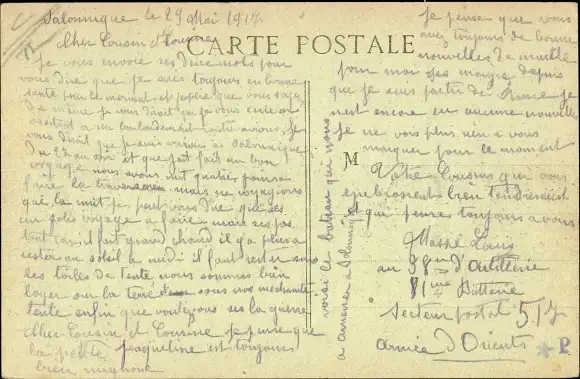 Salonnique le 29 Mai 1917
Cher Cousin et Cousine
CARTE POSTALE
Je vous envoie ses deux mots pour
vous dire que je suis toujours en bonne
santé pour le moment et j'espère que vous
de même je vous dirait que
assisté a un
vous dirait que je suis arrivé a Salonique
et que fait fait un bon
voyage nous avons mit quatre jours a
faire la mais ne voyagions
que la nuit je peut vous dire que ses
un jolis voyage a faire mais ses pas
tout ca il fait grand chaud il y a pas a
rester au soleil a midi il faut rester sous
les toiles de tente nous sommes bien
loger sur la terre sous nos méchante
tente enfin que voulez vous ses la guerre
cher Cousin et Cousine je pense que
la petite Jacqueline est toujours
bien mignone
voici le bateau qui nous
a amener a Salonique
je pense que vous
avez toujours de bonne
nouvelles de
pour moi depuis
que je suis partir de France je
n'est encore eu aucune nouvelle
Je ne vois plus rien a vous
M
marquer pour le moment
Votre Cousins qui vous
embrassent bien tendrement
et qui pense toujours a vous
Louis
au 38me d'Artillerie
81me Batterie
Secteur postal 517
armée d'Orient